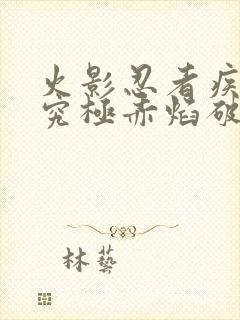 火影忍者疾
究極赤焰破
林藝